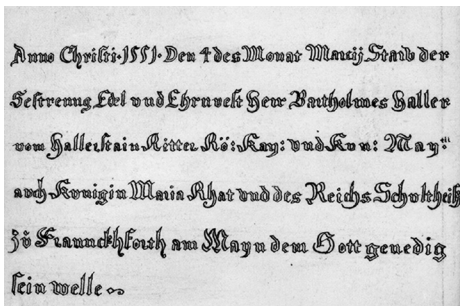 Anno Christi·1551·Den 4 des Monat Marcij Starb der
Gestrenng Edel vnd Ehrnvest Herr Bartholmes Haller
vom Hallerstain Ritter Rö: Kay: vnd Kvn: May:
avch Konigin Maria Rhat vnd des Reichs Schvltheiß
zů Franckhforth am Mayn dem Gott genedig
sein welle